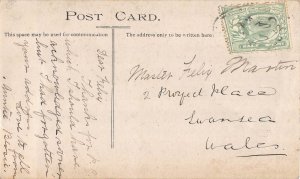 POST CARD.
This space may be used for communication
The address only to be written here.
Dear Felix
Thanks for P.C.
which I should have
acknowledged sooner
but I had forgotten
your address.
Love to all
from
Auntie
Master Felix Martin
2 Place
Swansea
Wales.